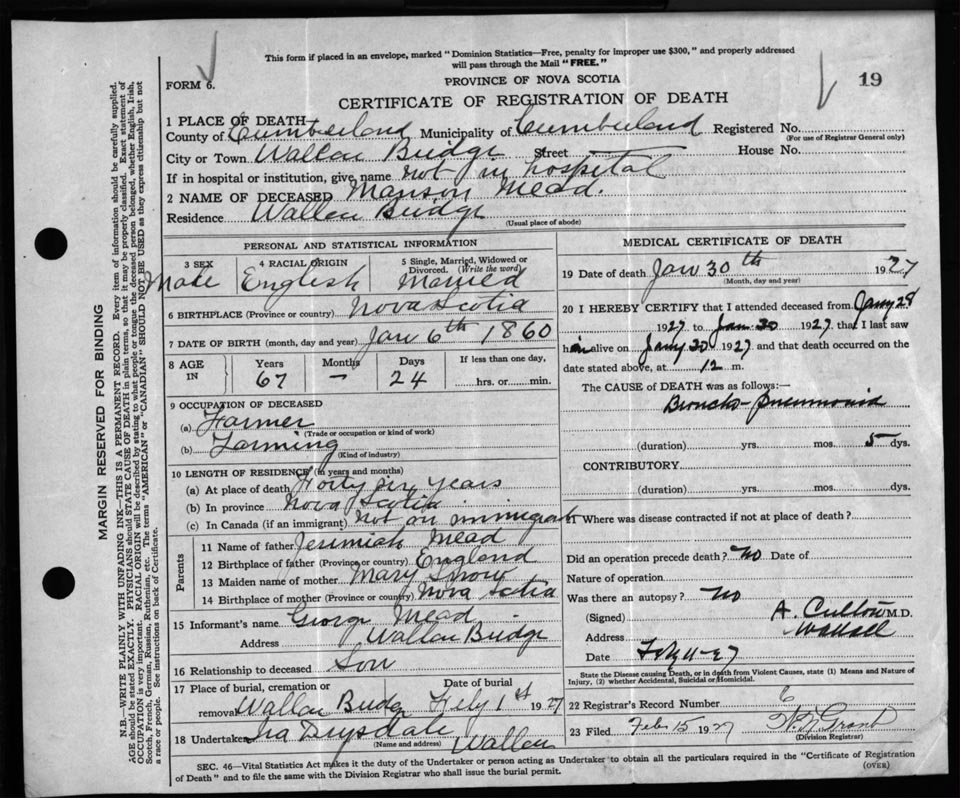 This form if placed in an envelope, marked "Dominion Statistics—Free, penalty for improper use $300," and properly addressed
will pass through the Mail "FREE."
FORM 6.
PROVINCE OF NOVA SCOTIA
19
CERTIFICATE OF REGISTRATION OF DEATH
1 PLACE OF DEATH
County of Cumberland Municipality of Cumberland Registered No.
(For use of Registrar General only)
City or Town Wallace Bridge Street House No.
If in hospital or institution, give name not in hospital
2 NAME OF DECEASED Manson Mead.
Residence Wallace Bridge
(Usual place of abode)
PERSONAL AND STATISTICAL INFORMATION
3 SEX
Male
4 RACIAL ORIGIN
English
5 Single, Married, Widowed or
Divorced. (Write the word)
Married
6 BIRTHPLACE (Province or country) Nova Scotia
7 DATE OF BIRTH (month, day and year) Jan 6th 1860
8 AGE IN
Years Months Days
67 – 24
If less than one day,
hrs. or min.
9 OCCUPATION OF DECEASED
(a) Farmer
(Trade or occupation or kind of work)
(b) Farming
(Kind of industry)
10 LENGTH OF RESIDENCE (in years and months)
(a) At place of death Forty six years
(b) In province Nova Scotia
(c) In Canada (if an immigrant) Not an immigrant
Parents
11 Name of father Jeremiah Mead
12 Birthplace of father (Province or country) England
13 Maiden name of mother Mary Snow
14 Birthplace of mother (Province or country) Nova Scotia
15 Informant's name George Mead
Address Wallace Bridge
16 Relationship to deceased Son
17 Place of burial, cremation or
removal Wallace Bridge
Date of burial
Feby 1st 1927
18 Undertaker Ira Drysdale Wallace
(Name and address)
MEDICAL CERTIFICATE OF DEATH
19 Date of death Jan 30th 1927
(Month, day and year)
20 I HEREBY CERTIFY that I attended deceased from Jany 28
1927 to Jan. 30 1927 that I last saw
him alive on Jany 30 1927 and that death occurred on the
date stated above, at 12 m.
The CAUSE of DEATH was as follows:—
Broncho-pneumonia
(duration) yrs. mos. 5 dys.
CONTRIBUTORY
(duration) yrs. mos. dys.
21 Where was disease contracted if not at place of death?
Did an operation precede death? No Date of
Nature of operation
Was there an autopsy? No
(Signed) A. M.D.
Address Wallace
Date
State the Disease causing Death, or in death from Violent Causes, state (1) Means and Nature of
Injury, (2) whether Accidental, Suicidal or Homicidal.
22 Registrar's Record Number 6
23 Filed Feb 15 1927 Grant
(Division Registrar)
SEC. 46—Vital Statistics Act makes it the duty of the Undertaker or person acting as Undertaker to obtain all the particulars required in the "Certificate of Registration
of Death" and to file the same with the Division Registrar who shall issue the burial permit.
(OVER)
MARGIN RESERVED FOR BINDING
N.B.—WRITE PLAINLY WITH UNFADING INK—THIS IS A PERMANENT RECORD. Every item of information should be carefully supplied.
AGE should be stated EXACTLY. PHYSICIANS should STATE CAUSE OF DEATH in plain terms, so that it may be properly classified. Exact statement of
OCCUPATION is very important. RACIAL ORIGIN will be described by stating to what people or tongue the deceased person belonged, whether English, Irish,
Scotch, French, German, Russian, Ruthenian, etc. The terms "AMERICAN" or "CANADIAN" SHOULD NOT BE USED as they express citizenship but not
a race or people. See instructions on back of Certificate.